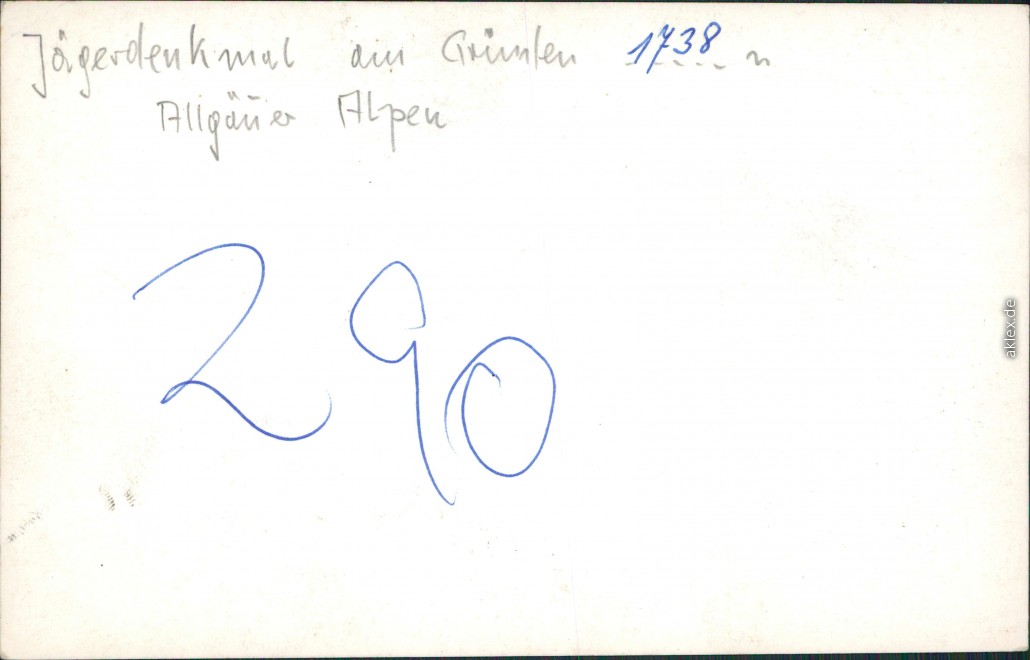 Jägerdenkmal am Grünten 1738 m
Allgäuer Alpen
290
aklex.de